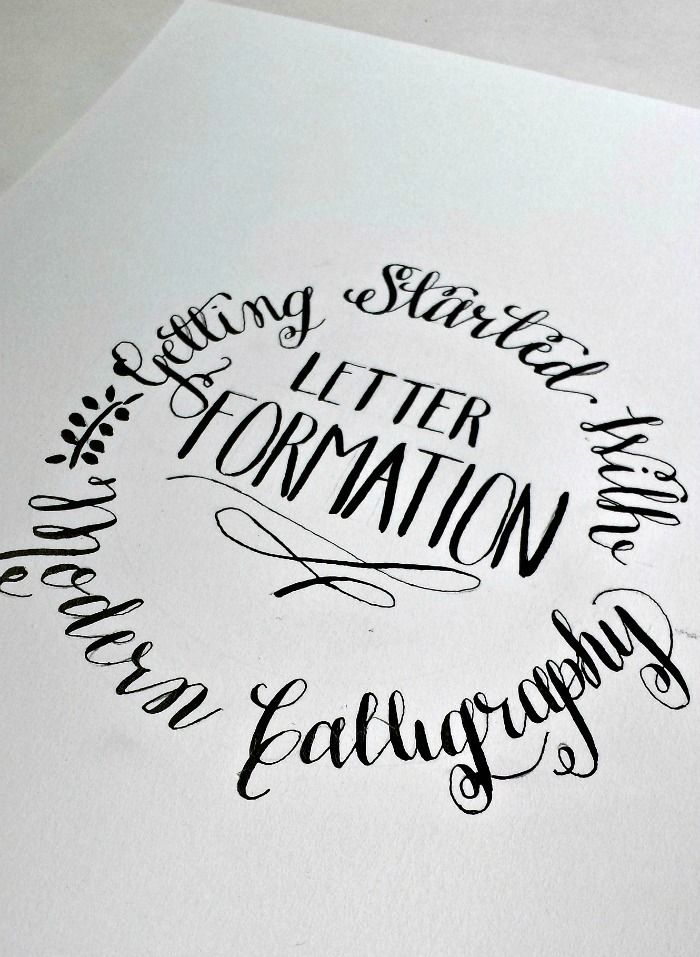 Getting Started With
Modern Calligraphy
LETTER
FORMATION